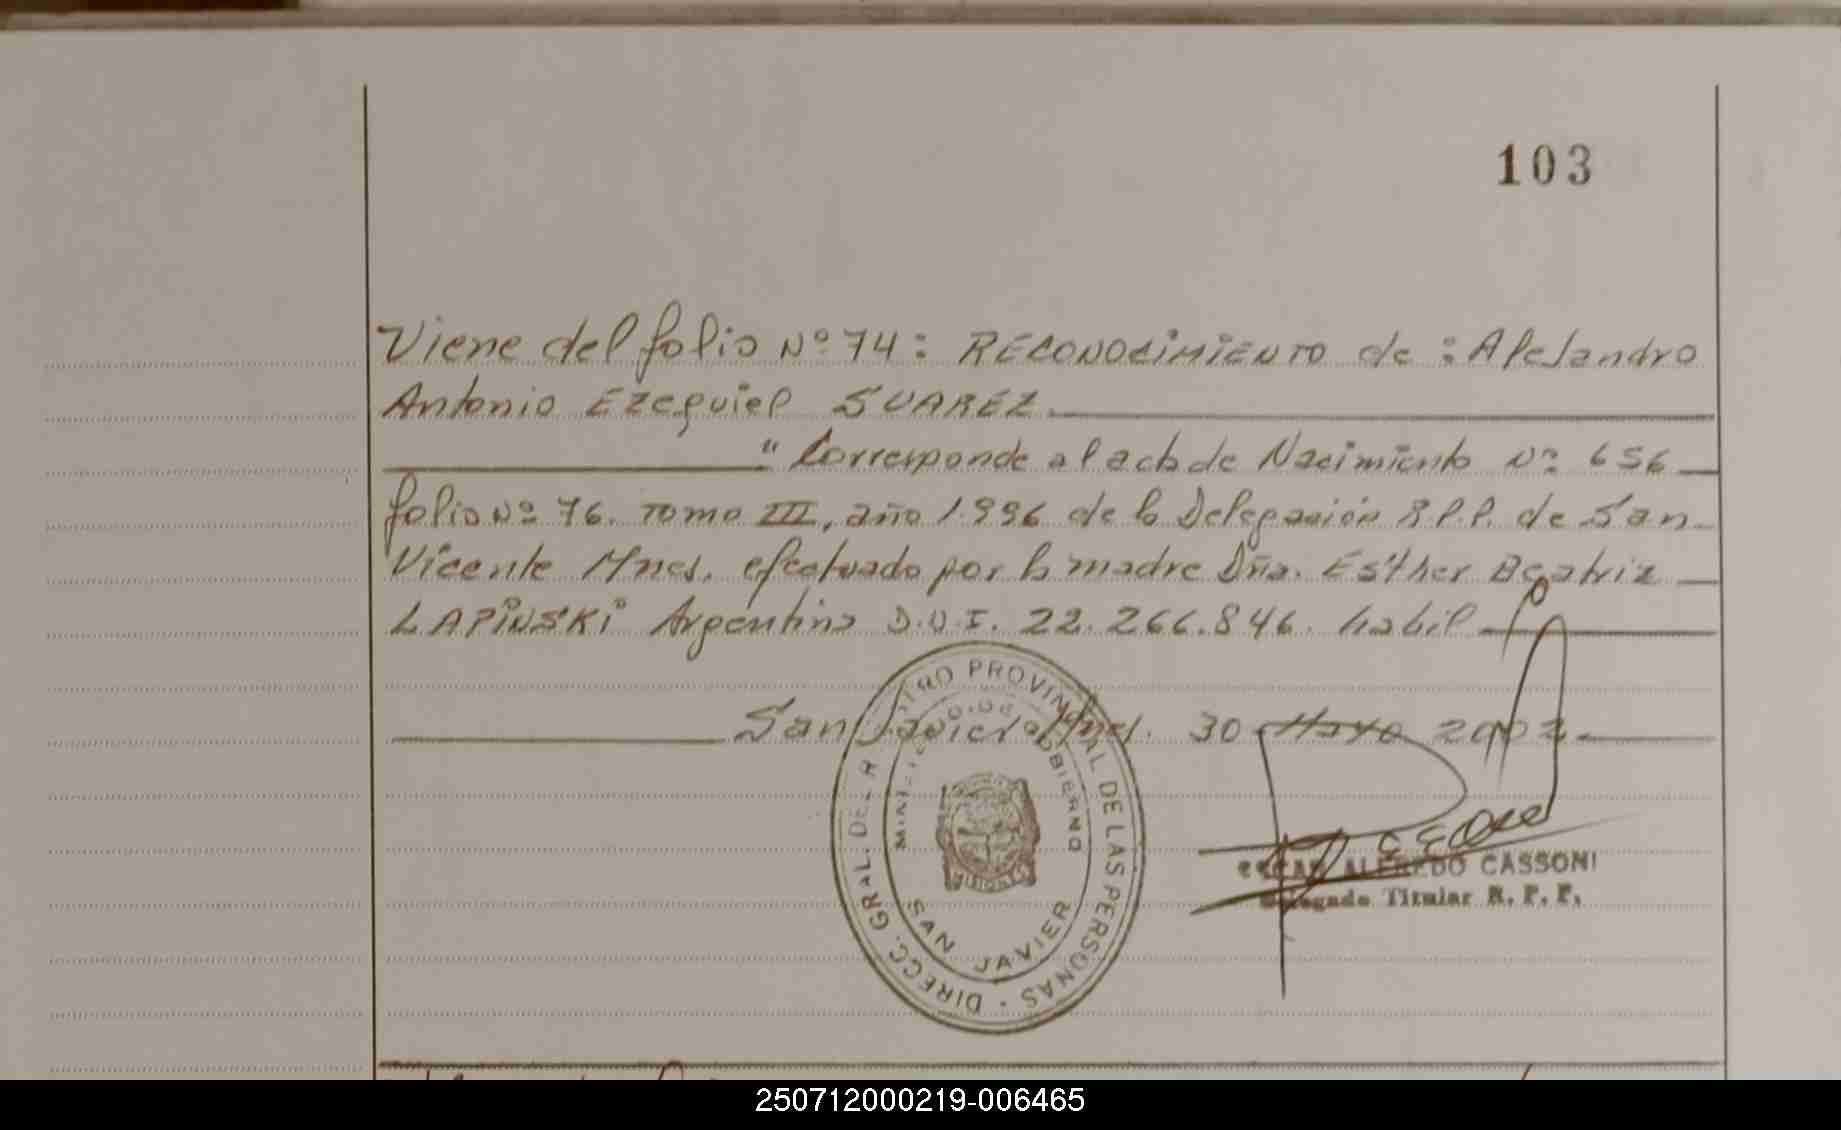 103
Viene del folio Nº 74: RECONOCIMIENTO de: Alejandro
Antonio Ezequiel SUAREZ.
" Corresponde al acta de Nacimiento Nº 656
folio Nº 76. Tomo III, año 1.996 de la Delegación R.P.P. de San
Vicente Mnes. efectuado por la madre Dña. Esther Beatriz
LAPINSKI Argentina D.N.I. 22.266.846. habil
San Javier Mnes. 30 Mayo 2002
DIRECC. GRAL. DEL REGISTRO PROVINCIAL DE LAS PERSONAS
MINISTERIO DE GOBIERNO
MISIONES
SAN JAVIER
OSCAR ALFREDO CASSONI
Delegado Titular R. P. P.
250712000219-006465